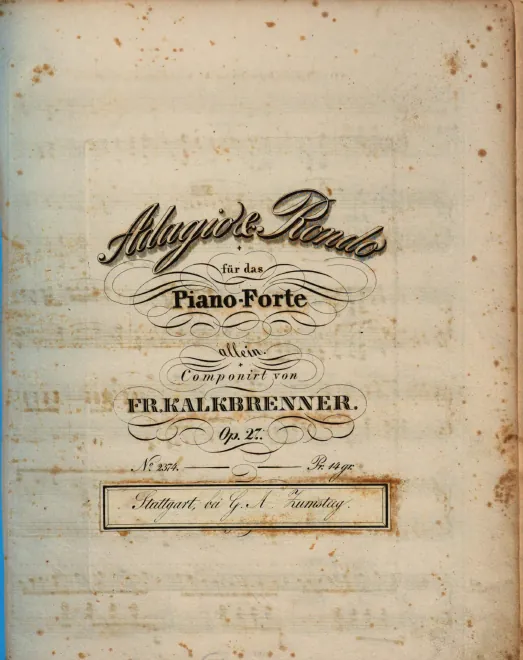 Adagio & Rondo
für das
Piano-Forte
allein.
Componirt von
FR. KALKBRENNER.
Op. 27.
No. 2374. Pr. 14 gr.
Stuttgart, bei G. A. Zumsteeg.